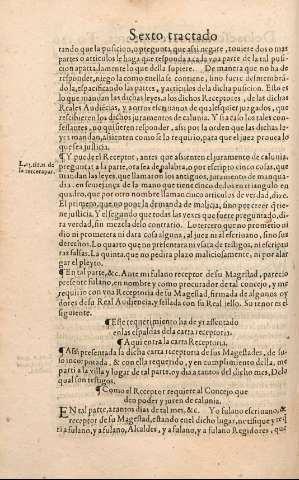 Sexto tractado
tando que la pusicion, o pregunta, que assi negare, touiere dos o mas
partes o articulos le haga que responda a cada vna parte de la tal pu
sicion apartadamente lo que della supiere. De manera que no ha de
responder, niego la como en ella se contiene, sino fuere desmembrā
dola, especificando las partes, y articulos de la dicha pusicion. Esto es
lo que mandan las dichas leyes, a los dichos Receptores, de las dichas
Reales Audiēcias, y a otros
rescibieren los dichos juramentos de calunia. Y si a caso los tales con-
fessantes, no quisieren responder, assi por la orden que las dichas le
yes mandan, assienten como se lo requirio, para que el juez prouea lo
que sea justicia.
¶ Y puede el Receptor, antes que assienten el juramento de calunia
preguntar a la parte, ora sea de palabra, o por escripto cinco cosas, que
mandan las leyes, que llamaron los antiguos, juramento de manqua
dra, en semejança de la mano que tiene cinco dedos
quadro, que por otro nombre llaman cinco articulos de verdad, dize.
El primero, que no pone la demanda de malicia, sino por creer q̄ tie-
ne justicia. Y el segundo que todas las vezes que fuere preguntado, di-
ra verdad, sin mezcla del contrario. Lo tercero que no prometio ni
dio ni prometera ni dara cosa alguna, al juez ni al escriuano, sino sus
derechos. Lo quarto que no presentara ni vsara de testigos, ni escriptu
ras falsas. La quinta, que no pedira plazo maliciosamente, ni por alar
gar el pleyto.
Ley, titu. de
la recceta par.
¶ En tal parte, &c. Ante mi fulano receptor de su Magestad, parecio
presente fulano, en nombre y como procurador de tal concejo, y me
requirio con vna Receptoria de su Magestad, firmada de algunos oy
dores de su Real Audiencia, y sellada con su Real sello. Su tenor es el
siguiente.
¶ Este requerimiento ha de yr assentado
en las espaldas de la carta receptoria.
¶ Aqui entra la carta Receptoria.
¶ Assi presentada la dicha carta receptoria de sus Magestades, de su-
so incorporada, & con ella requerido, y en cumplimiento della, me
parti a la villa y lugar de tal parte, oy dia a tantos del dicho mes, De lo
qual son testigos.
¶ Como el Receptor requiere al Concejo que
den poder y juren de calunia.
EN tal parte, a tantos dias de tal mes, &c. Yo fulano escriuano, &
receptor de su Magestad, estando en el dicho lugar, notifique y req̄
ri a fulano, y a fulano, Alcaldes, y a fulano, y a fulano Regidores, que